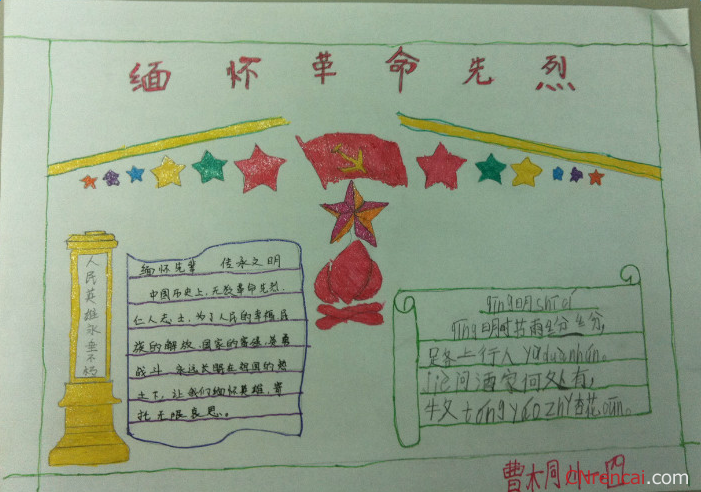 缅怀革命先烈
人民英雄永垂不朽
缅怀先辈 传承文明
中国历史上,无数革命先烈、
仁人志士,为了人民的幸福,民
族的解放、国家的富强,英勇
战斗,永远长眠在祖国的热
土下,让我们缅怀英雄,寄
托无限哀思。
qīng明shīcí
qīng明时节雨纷纷,
路上行人yùduànhún。
jiè问酒家何处有,
牧tóngyáozhǐ杏花cūn。